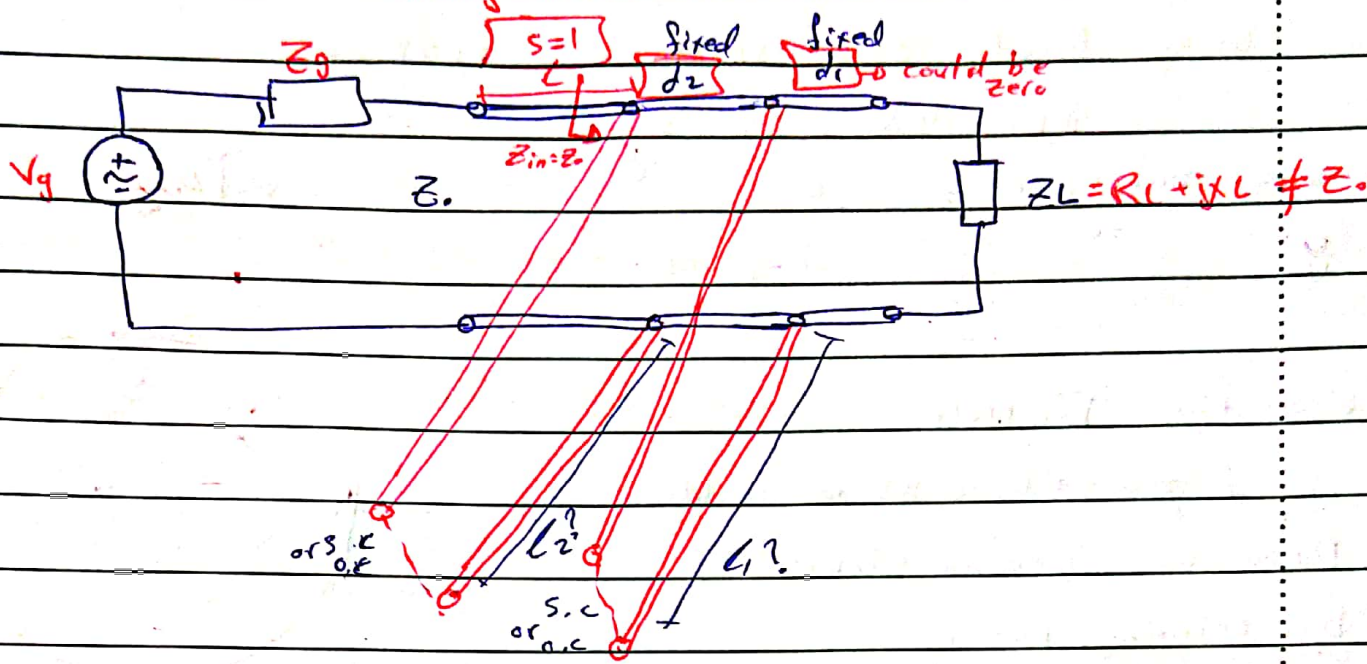 S=1
fixed
fixed
Zg
L
d2
d1 → could be
zero
Zin=Z.
Vg
+
~
Z.
ZL = RL + jXL ≠ Z.
or s.c
o.c
l2?
l1?
s.c
or o.c